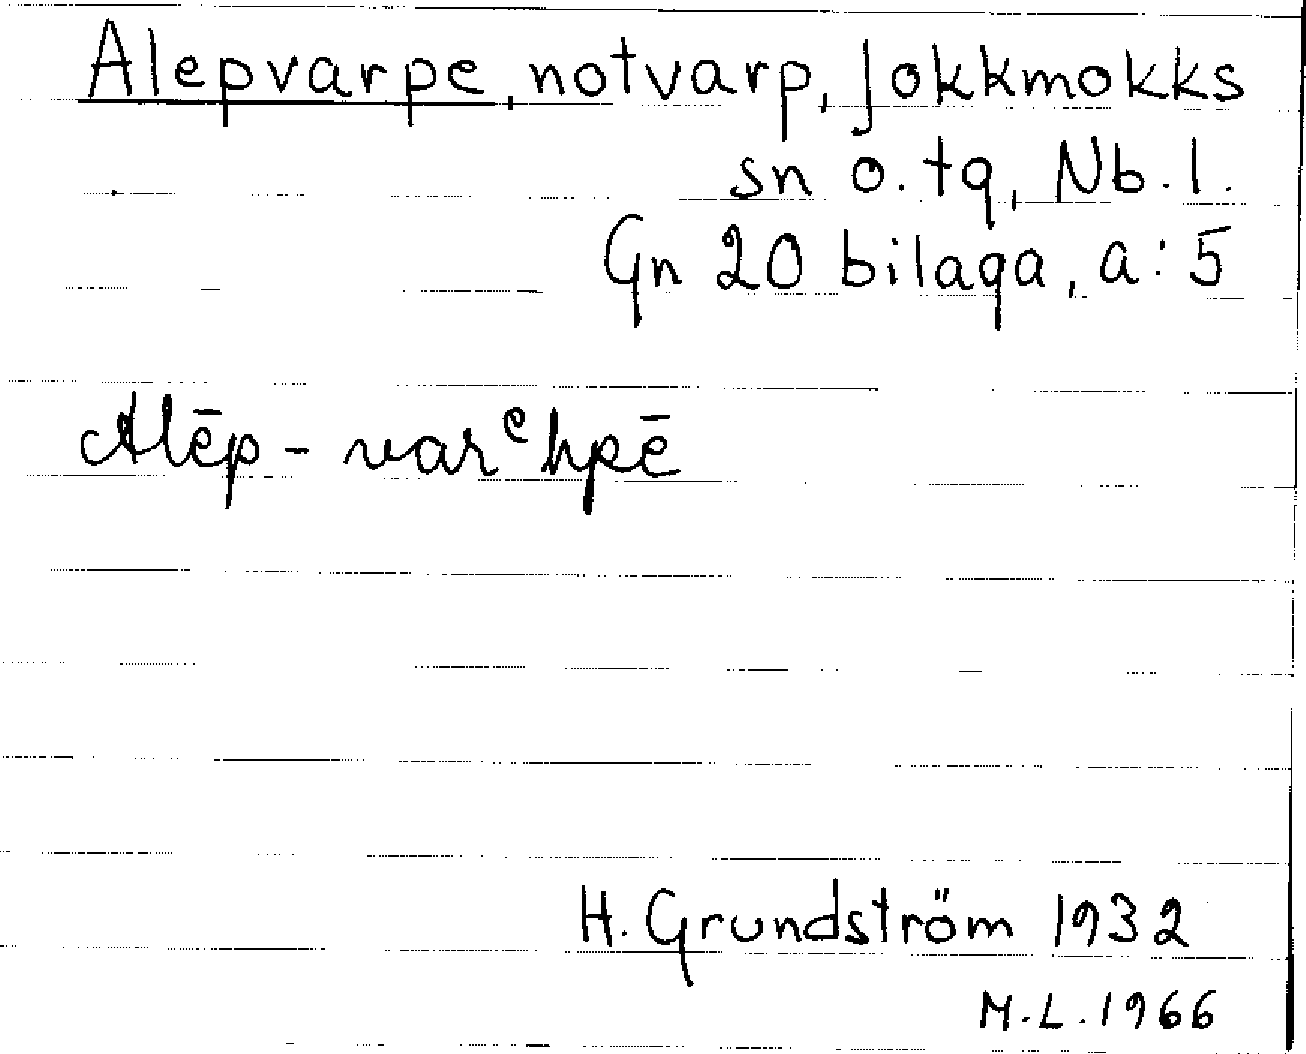 Alepvarpe, notvarp, Jokkmokks
sn o. tg, Nb. l.
Gn 20 bilaga, a:5
Alēp-varᵉhpē
H. Grundström 1932
M.L. 1966